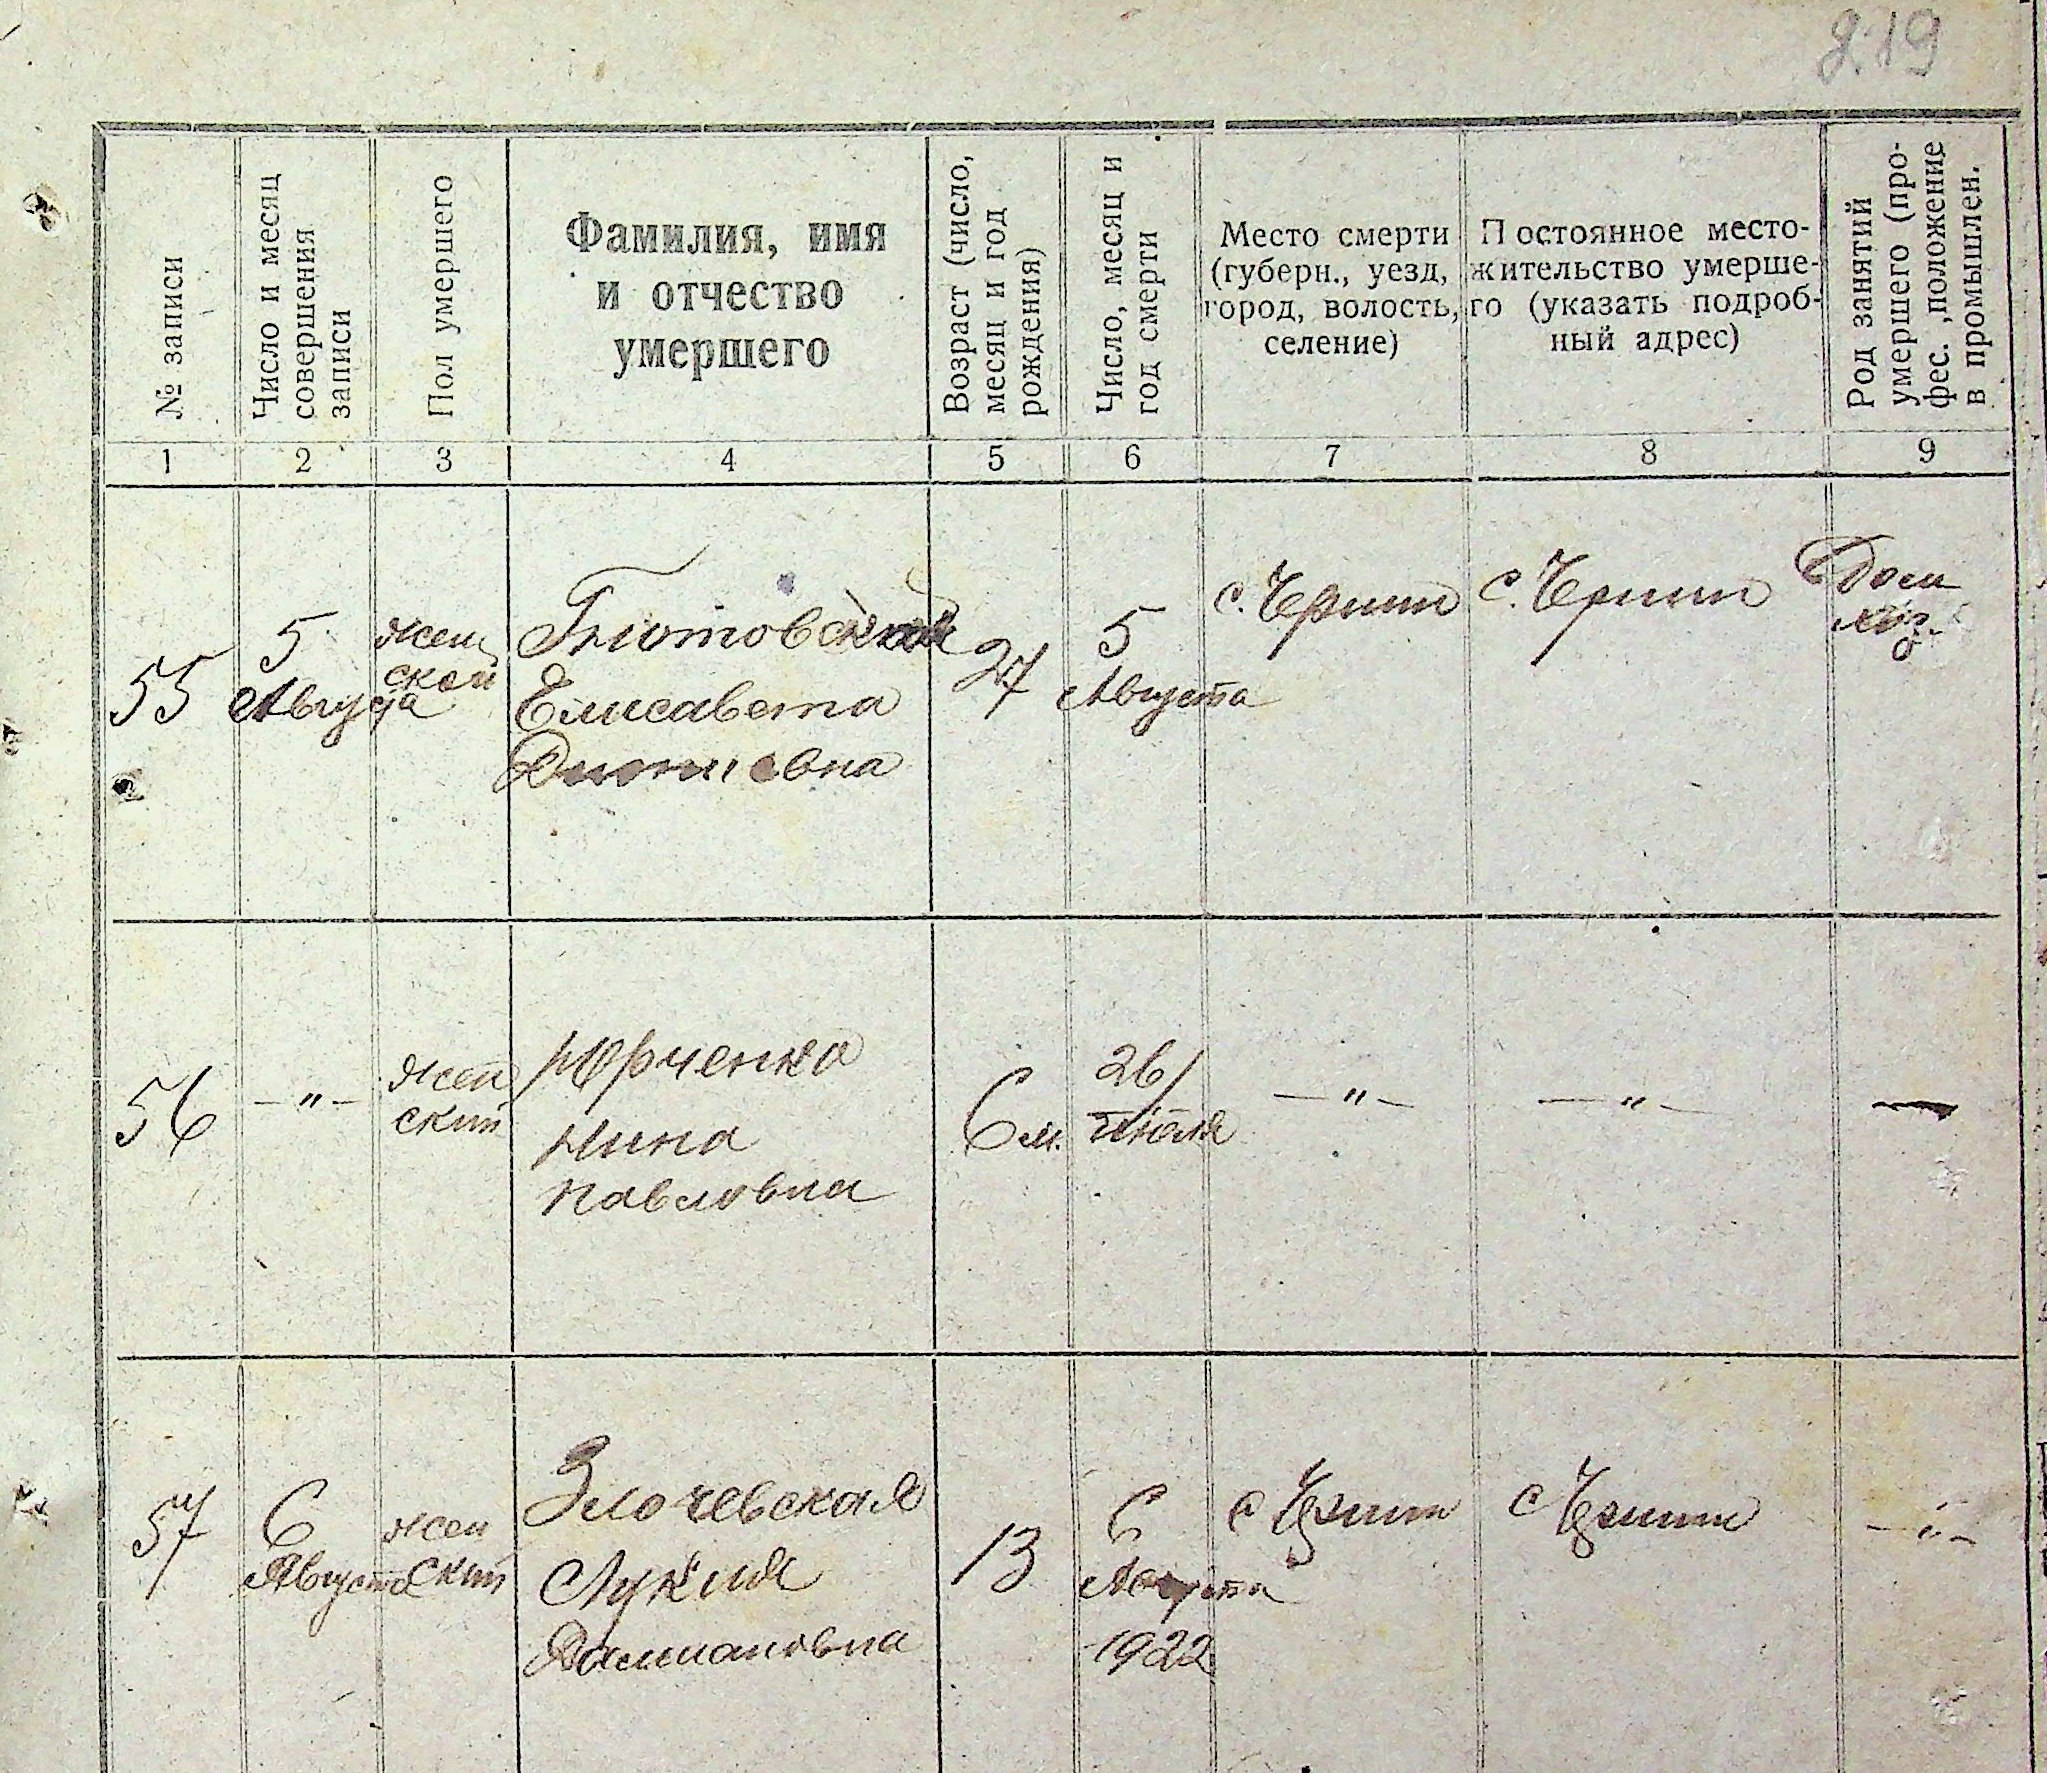 219
№ записи
Число и месяц
совершения
записи
Пол умершего
Фамилия, имя
и отчество
умершего
Возраст (число,
месяц и год
рождения)
Число, месяц и
год смерти
Место смерти
(губерн., уезд,
город, волость,
селение)
Постоянное место-
жительство умерше-
го (указать подроб-
ный адрес)
Род занятий
умершего (про-
фес., положение
в промышлен.
1 2 3 4 5 6 7 8 9
55
5
Августа
жен
ской
Елисавета
27
5
Августа
с. Черпин
с. Черпин
Дом
хоз.
56
— " —
жен
ский
Юрченко
Нина
Павловна
6 м.
26/
Июля
— " —
— " —
—
57
6
Августа
жен
ский
Злочевская
Лукия
13
6
Августа
1922
с Черпин
с Черпин
— " —